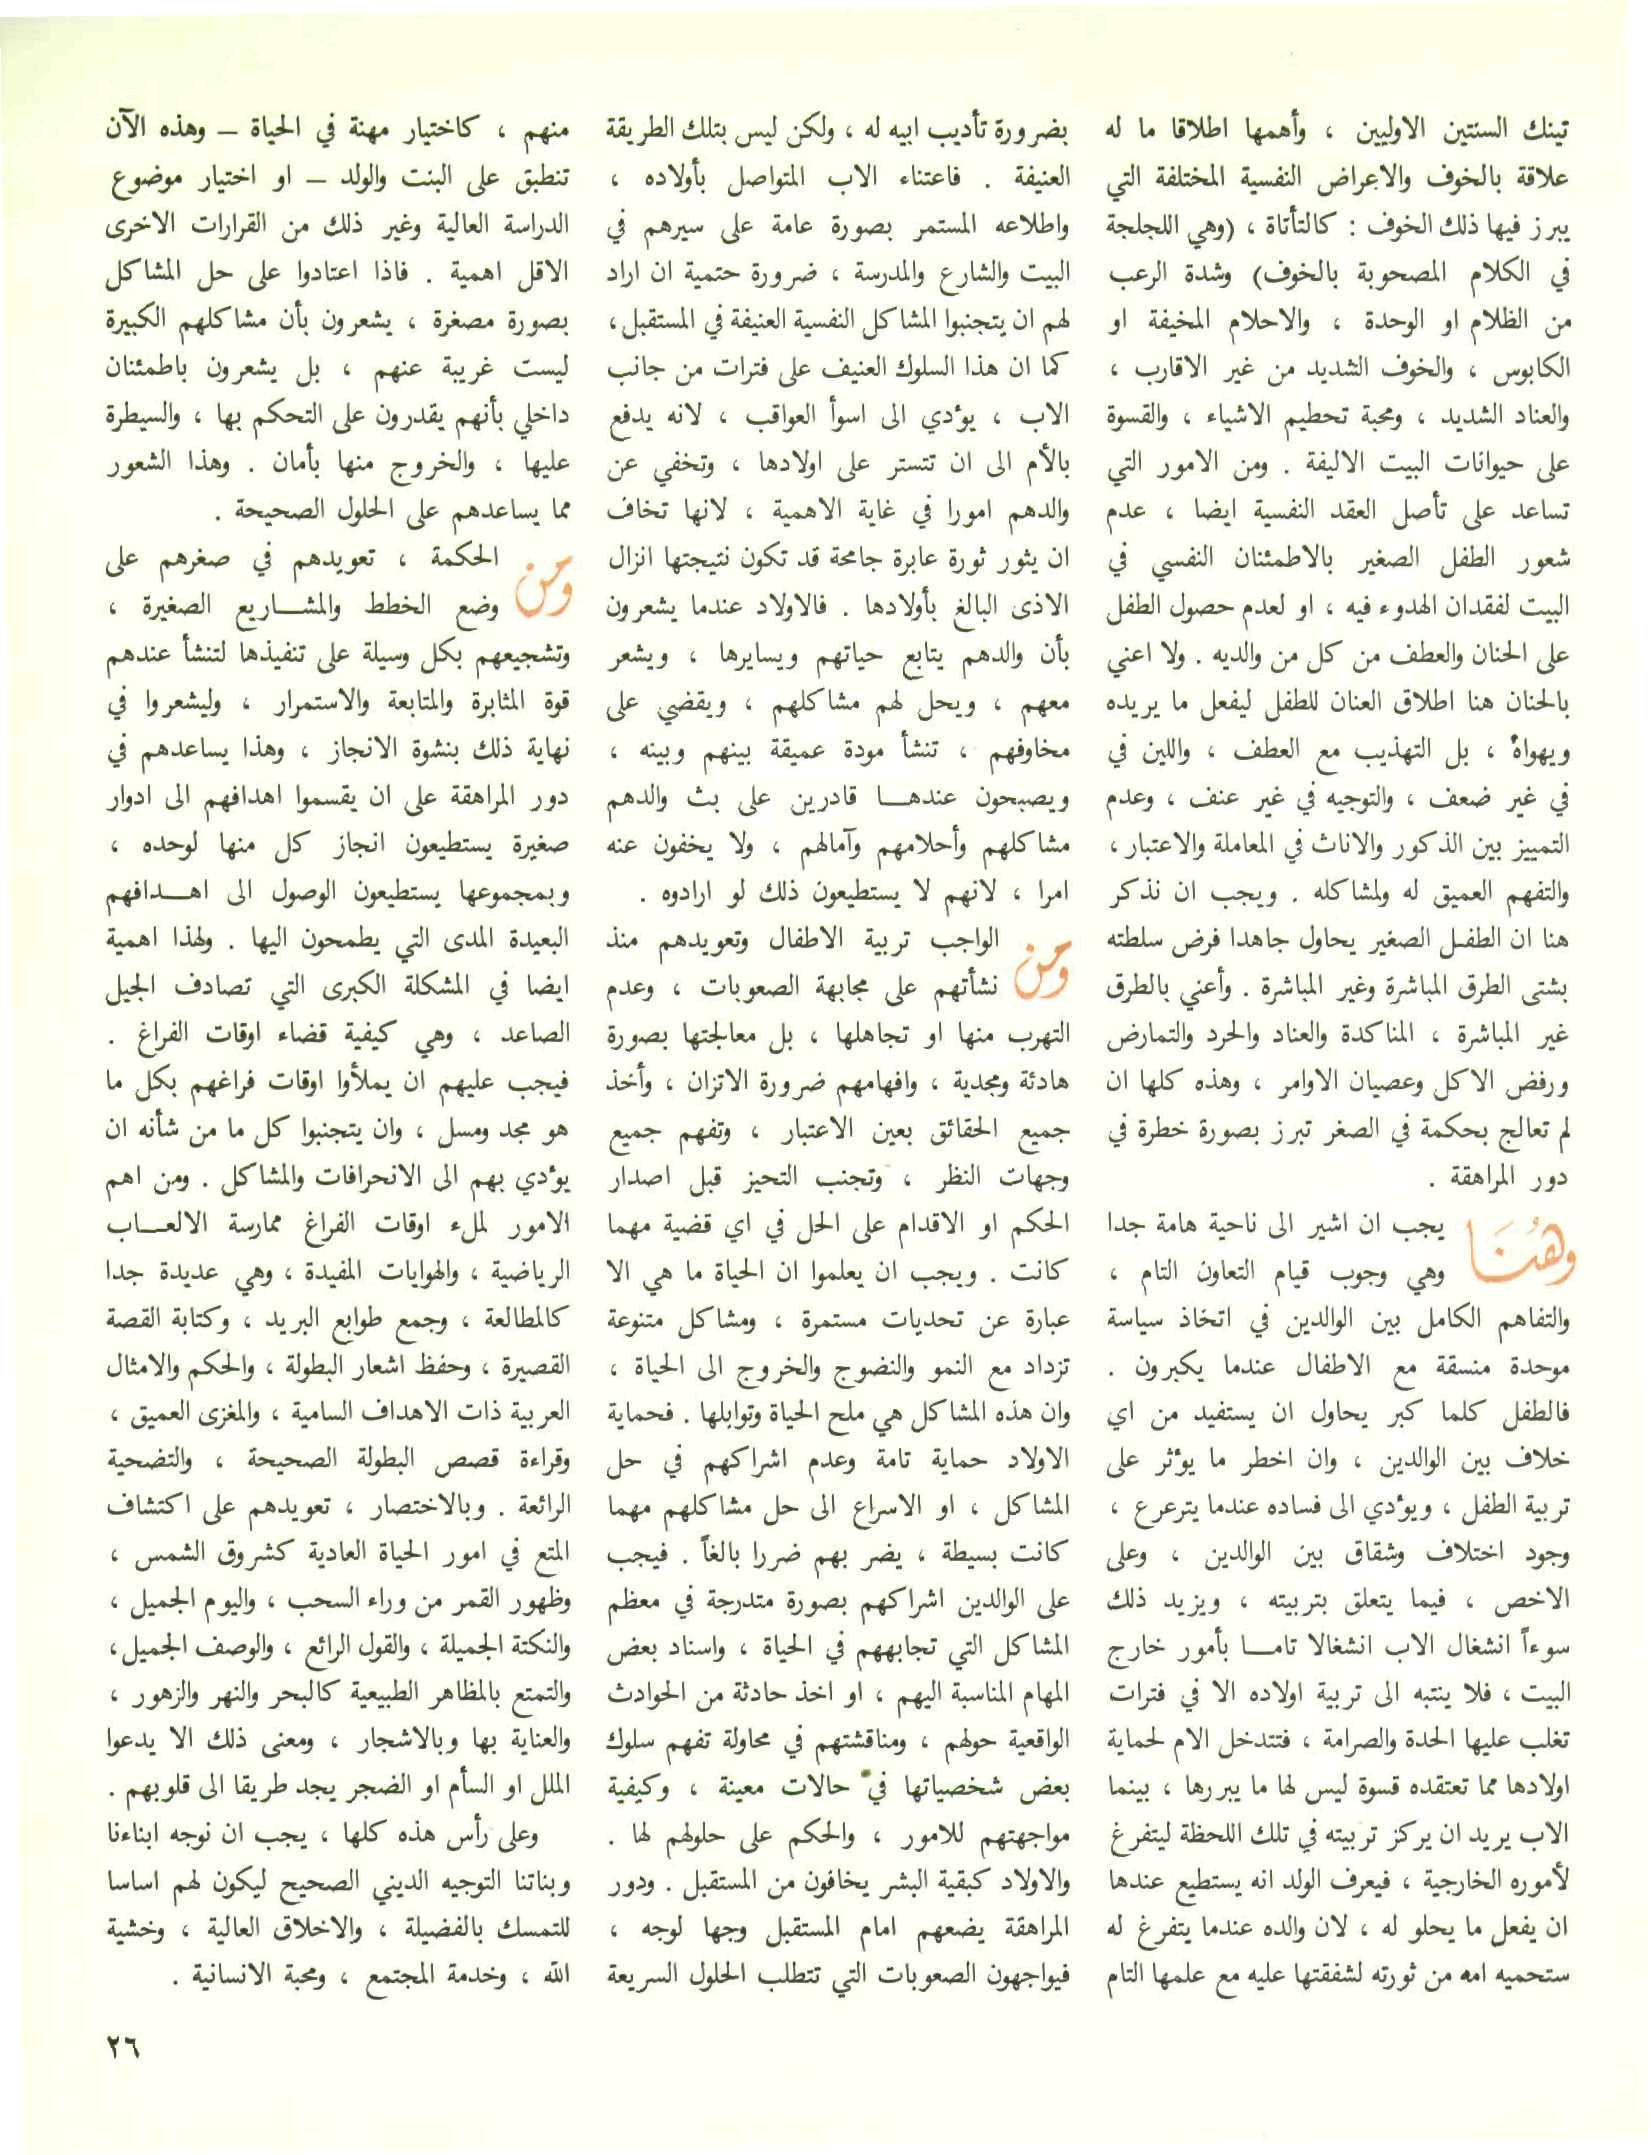 تينك السنتين الاوليين ، وأهمها اطلاقا ما له
علاقة بالخوف والاعراض النفسية المختلفة التي
يبرز فيها ذلك الخوف : كالتأتاة ، (وهي اللجلجة
في الكلام المصحوبة بالخوف) وشدة الرعب
من الظلام او الوحدة ، والاحلام المخيفة او
الكابوس ، والخوف الشديد من غير الاقارب ،
والعناد الشديد ، ومحبة تحطيم الاشياء ، والقسوة
على حيوانات البيت الاليفة . ومن الامور التي
تساعد على تأصل العقد النفسية ايضا ، عدم
شعور الطفل الصغير بالاطمئنان النفسي في
البيت لفقدان الهدوء فيه ، او لعدم حصول الطفل
على الحنان والعطف من كل من والديه . ولا اعني
بالحنان هنا اطلاق العنان للطفل ليفعل ما يريده
ويهواه ، بل التهذيب مع العطف ، واللين في
في غير ضعف ، والتوجيه في غير عنف ، وعدم
التمييز بين الذكور والاناث في المعاملة والاعتبار ،
والتفهم العميق له ولمشاكله . ويجب ان نذكر
هنا ان الطفل الصغير يحاول جاهدا فرض سلطته
بشتى الطرق المباشرة وغير المباشرة . وأعني بالطرق
غير المباشرة ، المناكدة والعناد والحرد والتمارض
ورفض الاكل وعصيان الاوامر ، وهذه كلها ان
لم تعالج بحكمة في الصغر تبرز بصورة خطرة في
دور المراهقة .
وهُنَا يجب ان اشير الى ناحية هامة جدا
وهي وجوب قيام التعاون التام ،
والتفاهم الكامل بين الوالدين في اتخاذ سياسة
موحدة منسقة مع الاطفال عندما يكبرون .
فالطفل كلما كبر يحاول ان يستفيد من اي
خلاف بين الوالدين ، وان اخطر ما يؤثر على
تربية الطفل ، ويؤدي الى فساده عندما يترعرع ،
وجود اختلاف وشقاق بين الوالدين ، وعلى
الاخص ، فيما يتعلق بتربيته ، ويزيد ذلك
سوءاً انشغال الاب انشغالا تامـا بأمور خارج
البيت ، فلا ينتبه الى تربية اولاده الا في فترات
تغلب عليها الحدة والصرامة ، فتتدخل الام لحماية
اولادها مما تعتقده قسوة ليس لها ما يبررها ، بينما
الاب يريد ان يركز تربيته في تلك اللحظة ليتفرغ
لأموره الخارجية ، فيعرف الولد انه يستطيع عندها
ان يفعل ما يحلو له ، لان والده عندما يتفرغ له
ستحميه امه من ثورته لشفقتها عليه مع علمها التام
بضرورة تأديب ابيه له ، ولكن ليس بتلك الطريقة
العنيفة . فاعتناء الاب المتواصل بأولاده ،
واطلاعه المستمر بصورة عامة على سيرهم في
البيت والشارع والمدرسة ، ضرورة حتمية ان اراد
لهم ان يتجنبوا المشاكل النفسية العنيفة في المستقبل ،
كما ان هذا السلوك العنيف على فترات من جانب
الاب ، يؤدي الى اسوأ العواقب ، لانه يدفع
بالأم الى ان تتستر على اولادها ، وتخفي عن
والدهم امورا في غاية الاهمية ، لانها تخاف
ان يثور ثورة عابرة جامحة قد تكون نتيجتها انزال
الاذى البالغ بأولادها . فالاولاد عندما يشعرون
بأن والدهم يتابع حياتهم ويسايرها ، ويشعر
معهم ، ويحل لهم مشاكلهم ، ويقضي على
مخاوفهم ، تنشأ مودة عميقة بينهم وبينه ،
ويصبحون عندهـا قادرين على بث والدهم
مشاكلهم وأحلامهم وآمالهم ، ولا يخفون عنه
امرا ، لانهم لا يستطيعون ذلك لو ارادوه .
ومن الواجب تربية الاطفال وتعويدهم منذ
نشأتهم على مجابهة الصعوبات ، وعدم
التهرب منها او تجاهلها ، بل معالجتها بصورة
هادئة ومجدية ، وافهامهم ضرورة الاتزان ، وأخذ
جميع الحقائق بعين الاعتبار ، وتفهم جميع
وجهات النظر ، وتجنب التحيز قبل اصدار
الحكم او الاقدام على الحل في اي قضية مهما
كانت . ويجب ان يعلموا ان الحياة ما هي الا
عبارة عن تحديات مستمرة ، ومشاكل متنوعة
تزداد مع النمو والنضوج والخروج الى الحياة ،
وان هذه المشاكل هي ملح الحياة وتوابلها . فحماية
الاولاد حماية تامة وعدم اشراكهم في حل
المشاكل ، او الاسراع الى حل مشاكلهم مهما
كانت بسيطة ، يضر بهم ضررا بالغاً . فيجب
على الوالدين اشراكهم بصورة متدرجة في معظم
المشاكل التي تجابههم في الحياة ، واسناد بعض
المهام المناسبة اليهم ، او اخذ حادثة من الحوادث
الواقعية حولهم ، ومناقشتهم في محاولة تفهم سلوك
بعض شخصياتها في حالات معينة ، وكيفية
مواجهتهم للامور ، والحكم على حلولهم لها .
والاولاد كبقية البشر يخافون من المستقبل . ودور
المراهقة يضعهم امام المستقبل وجها لوجه ،
فيواجهون الصعوبات التي تتطلب الحلول السريعة
منهم ، كاختيار مهنة في الحياة – وهذه الآن
تنطبق على البنت والولد – او اختيار موضوع
الدراسة العالية وغير ذلك من القرارات الاخرى
الاقل اهمية . فاذا اعتادوا على حل المشاكل
بصورة مصغرة ، يشعرون بأن مشاكلهم الكبيرة
ليست غريبة عنهم ، بل يشعرون باطمئنان
داخلي بأنهم يقدرون على التحكم بها ، والسيطرة
عليها ، والخروج منها بأمان . وهذا الشعور
مما يساعدهم على الحلول الصحيحة .
ومن الحكمة ، تعويدهم في صغرهم على
وضع الخطط والمشـاريع الصغيرة ،
وتشجيعهم بكل وسيلة على تنفيذها لتنشأ عندهم
قوة المثابرة والمتابعة والاستمرار ، وليشعروا في
نهاية ذلك بنشوة الانجاز ، وهذا يساعدهم في
دور المراهقة على ان يقسموا اهدافهم الى ادوار
صغيرة يستطيعون انجاز كل منها لوحده ،
وبمجموعها يستطيعون الوصول الى اهـدافهم
البعيدة المدى التي يطمحون اليها . ولهذا اهمية
ايضا في المشكلة الكبرى التي تصادف الجيل
الصاعد ، وهي كيفية قضاء اوقات الفراغ .
فيجب عليهم ان يملأوا اوقات فراغهم بكل ما
هو مجد ومسل ، وان يتجنبوا كل ما من شأنه ان
يؤدي بهم الى الانحرافات والمشاكل . ومن اهم
الامور لملء اوقات الفراغ ممارسة الالعـاب
الرياضية ، والهوايات المفيدة ، وهي عديدة جدا
كالمطالعة ، وجمع طوابع البريد ، وكتابة القصة
القصيرة ، وحفظ اشعار البطولة ، والحكم والامثال
العربية ذات الاهداف السامية ، والمغزى العميق ،
وقراءة قصص البطولة الصحيحة ، والتضحية
الرائعة . وبالاختصار ، تعويدهم على اكتشاف
المتع في امور الحياة العادية كشروق الشمس ،
وظهور القمر من وراء السحب ، واليوم الجميل ،
والنكتة الجميلة ، والقول الرائع ، والوصف الجميل ،
والتمتع بالمظاهر الطبيعية كالبحر والنهر والزهور ،
والعناية بها وبالاشجار ، ومعنى ذلك الا يدعوا
الملل او السأم او الضجر يجد طريقا الى قلوبهم .
وعلى رأس هذه كلها ، يجب ان نوجه ابناءنا
وبناتنا التوجيه الديني الصحيح ليكون لهم اساسا
للتمسك بالفضيلة ، والاخلاق العالية ، وخشية
الله ، وخدمة المجتمع ، ومحبة الانسانية .
٢٦